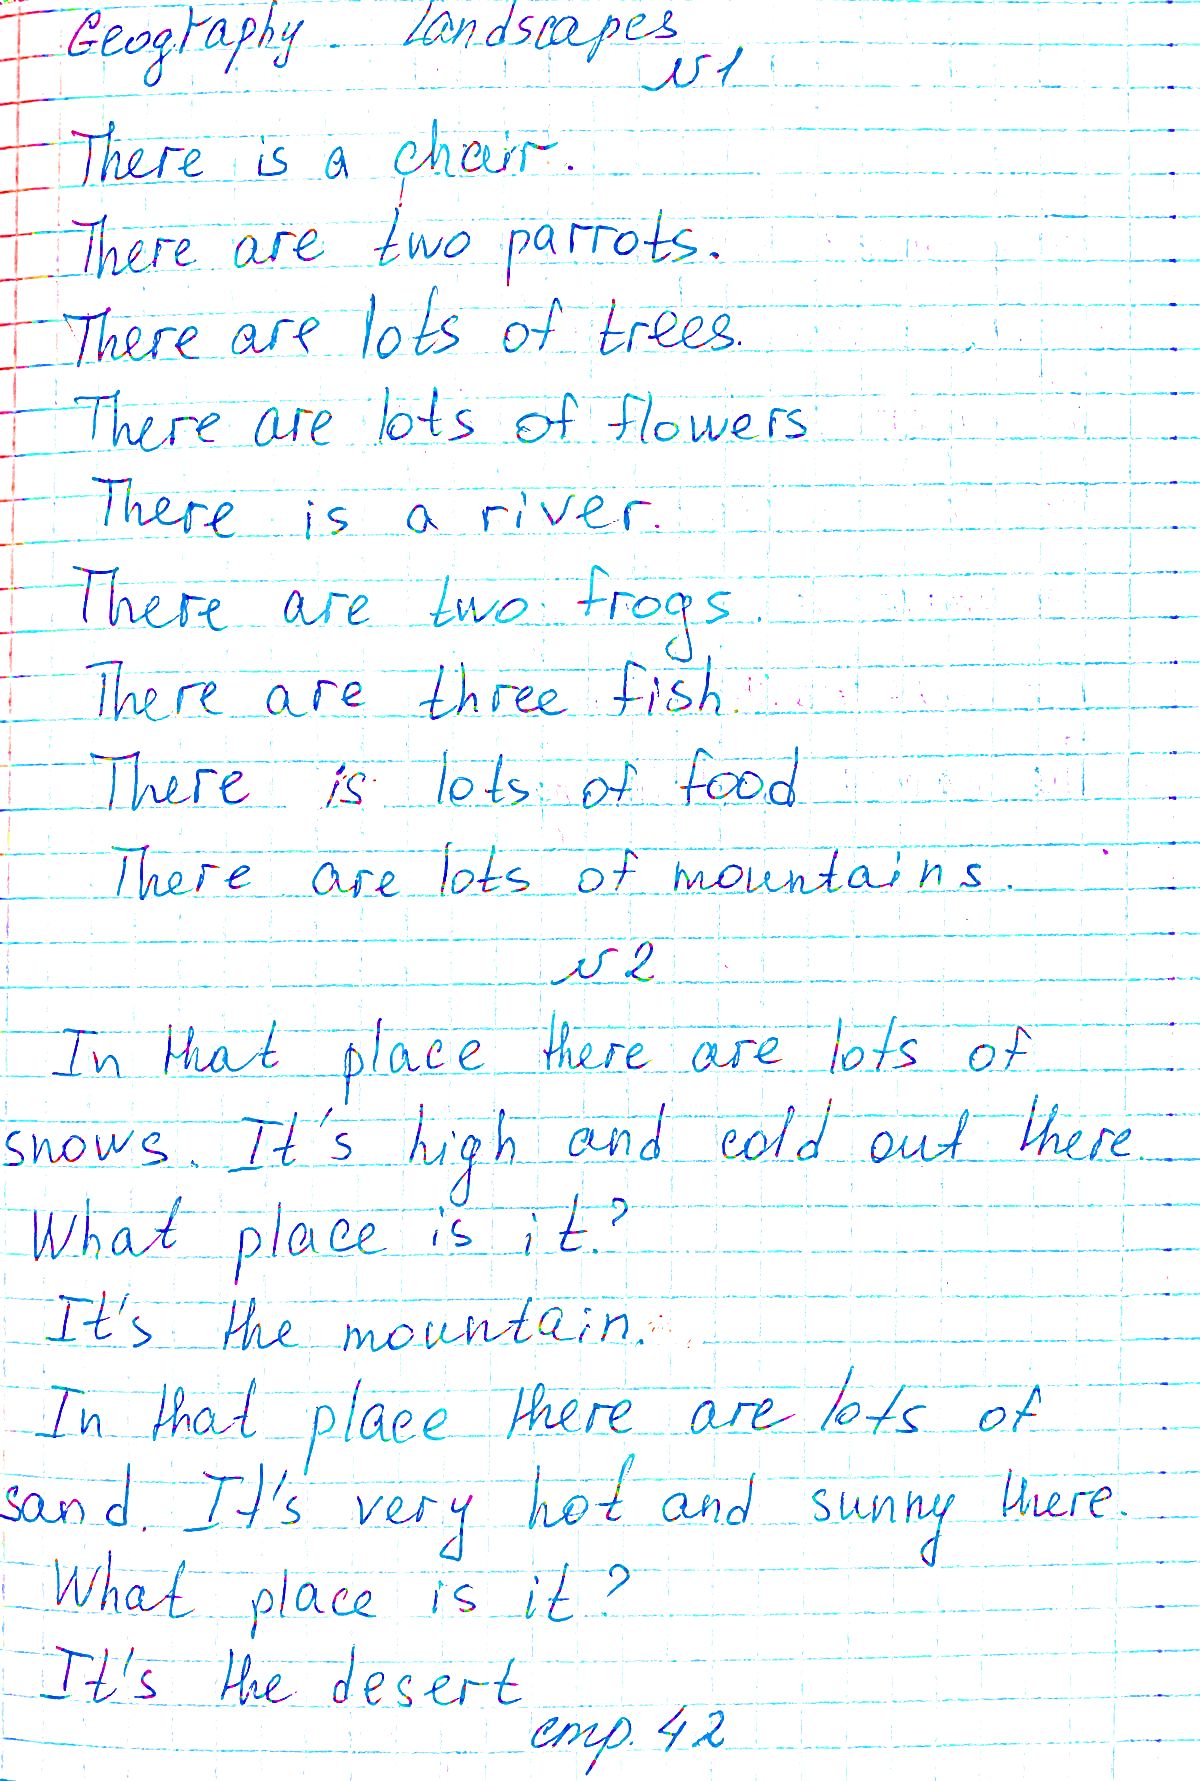 Geography. Landscapes
№1
There is a chair.
There are two parrots.
There are lots of trees.
There are lots of flowers
There is a river.
There are two frogs.
There are three fish.
There is lots of food
There are lots of mountains.
№2
In that place there are lots of
snows. It's high and cold out there.
What place is it?
It's the mountain.
In that place there are lots of
sand. It's very hot and sunny there.
What place is it?
It's the desert
стр. 42